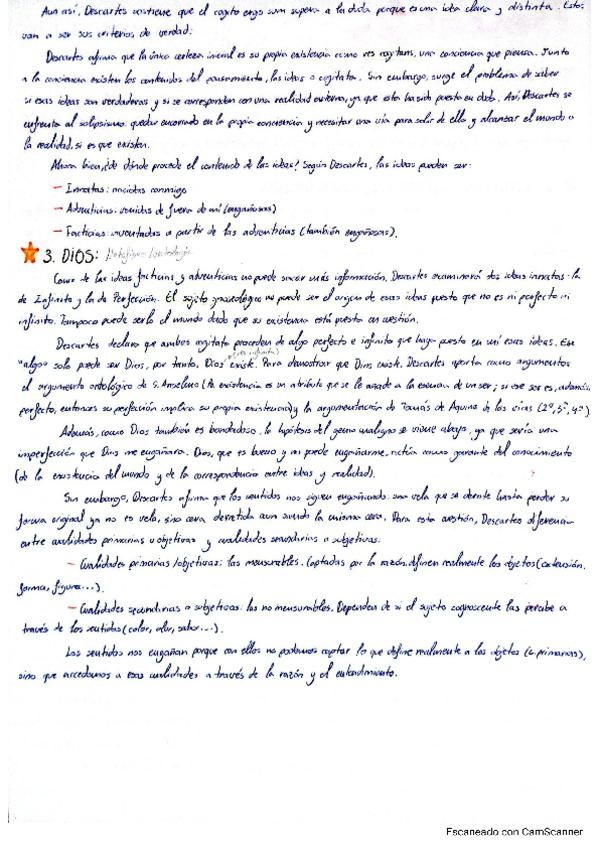 Aun así, Descartes sostiene que el cogito ergo sum supera a la duda porque es una idea clara y distinta. Estos
van a ser sus criterios de verdad:
Descartes afirma que la única certeza inicial es su propia existencia como res cogitans, una conciencia que piensa. Junto
a la conciencia existen los contenidos del pensamiento, las ideas o cogitata. Sin embargo, surge el problema de saber
si esas ideas son verdaderas y si se corresponden con una realidad externa, ya que esta ha sido puesta en duda. Así, Descartes se
enfrenta al solipsismo: quedar encerrado en la propia conciencia y necesitar una vía para salir de ella y alcanzar el mundo o
la realidad, si es que existen.
Ahora bien, ¿de dónde procede el contenido de las ideas? Según Descartes, las ideas pueden ser:
- Innatas: nacidas conmigo
- Adventicias: venidas de fuera de mí (engañosas)
- Facticias: inventadas a partir de las adventicias (también engañosas).
3. DIOS:
Como de las ideas facticias y adventicias no puede sacar más información, Descartes examinará dos ideas innatas: la
de Infinito y la de Perfección. El sujeto gnoseológico no puede ser el origen de esas ideas puesto que no es ni perfecto ni
infinito. Tampoco puede serlo el mundo dado que su existencia está puesta en cuestión.
Descartes declara que ambos cogitata proceden de algo perfecto e infinito que haya puesto en mí esas ideas. Ese
"algo" solo puede ser Dios, por tanto, Dios existe. Para demostrar que Dios existe, Descartes aporta como argumentos
(res infinita)
el argumento ontológico de S. Anselmo (la existencia es un atributo que se le añade a la esencia de un ser; si ese ser es, además,
perfecto, entonces su perfección implica su propia existencia) y la argumentación de Tomás de Aquino de las vías (2ª, 3ª, 4ª)
Además, como Dios también es bondadoso, la hipótesis del genio maligno se viene abajo, ya que sería una
imperfección que Dios me engañara. Dios, que es bueno y ni puede engañarme, actúa como garante del conocimiento
(de la existencia del mundo y de la correspondencia entre ideas y realidad).
Sin embargo, Descartes afirma que los sentidos nos siguen engañando: una vela que se derrite hasta perder su
forma original ya no es vela, sino cera derretida aun siendo la misma cera. Para esta cuestión, Descartes diferencia
entre cualidades primarias u objetivas y cualidades secundarias o subjetivas:
- Cualidades primarias/objetivas: las mensurables. Captadas por la razón, definen realmente los objetos (extensión,
forma, figura...).
- Cualidades secundarias o subjetivas: las no mensurables. Dependen de si el sujeto cognoscente las percibe a
través de los sentidos (color, olor, sabor...).
Los sentidos nos engañan porque con ellos no podemos captar lo que define realmente a los objetos (c. primarias),
sino que accedemos a esas cualidades a través de la razón y el entendimiento.
Escaneado con CamScanner